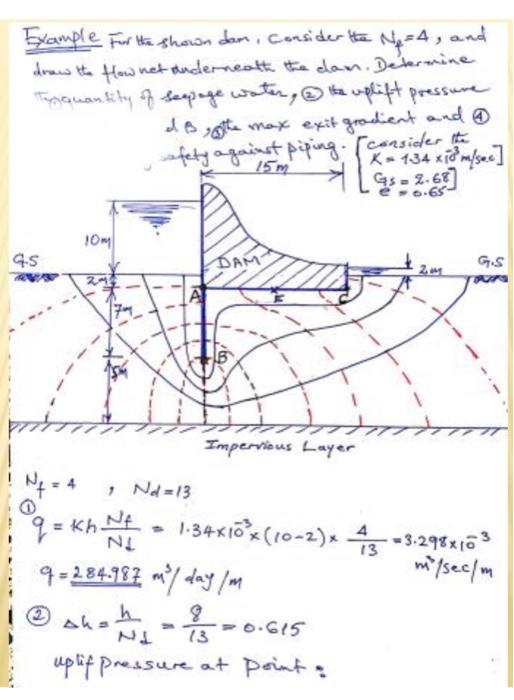 Example For the shown dam, consider the Nf=4, and
draw the flow net underneath the dam. Determine
quantity of seepage water, ② the uplift pressure
d B, ③ the max exit gradient and ④
afety against piping.
[consider the
K = 1.34 x 10⁻³ m/sec]
Gs = 2.68]
e = 0.65
15m
10m
G.S
DAM
2m
G.S
2m
A
E
C
7m
B
5m
Impervious Layer
Nf = 4 , Nd = 13
①
q = Kh Nf/Nd = 1.34x10⁻³ x (10-2) x 4/13 = 3.298x10⁻³
m³/sec/m
q = 284.987 m³/day/m
② Δh = h/Nd = 8/13 = 0.615
uplif pressure at point :